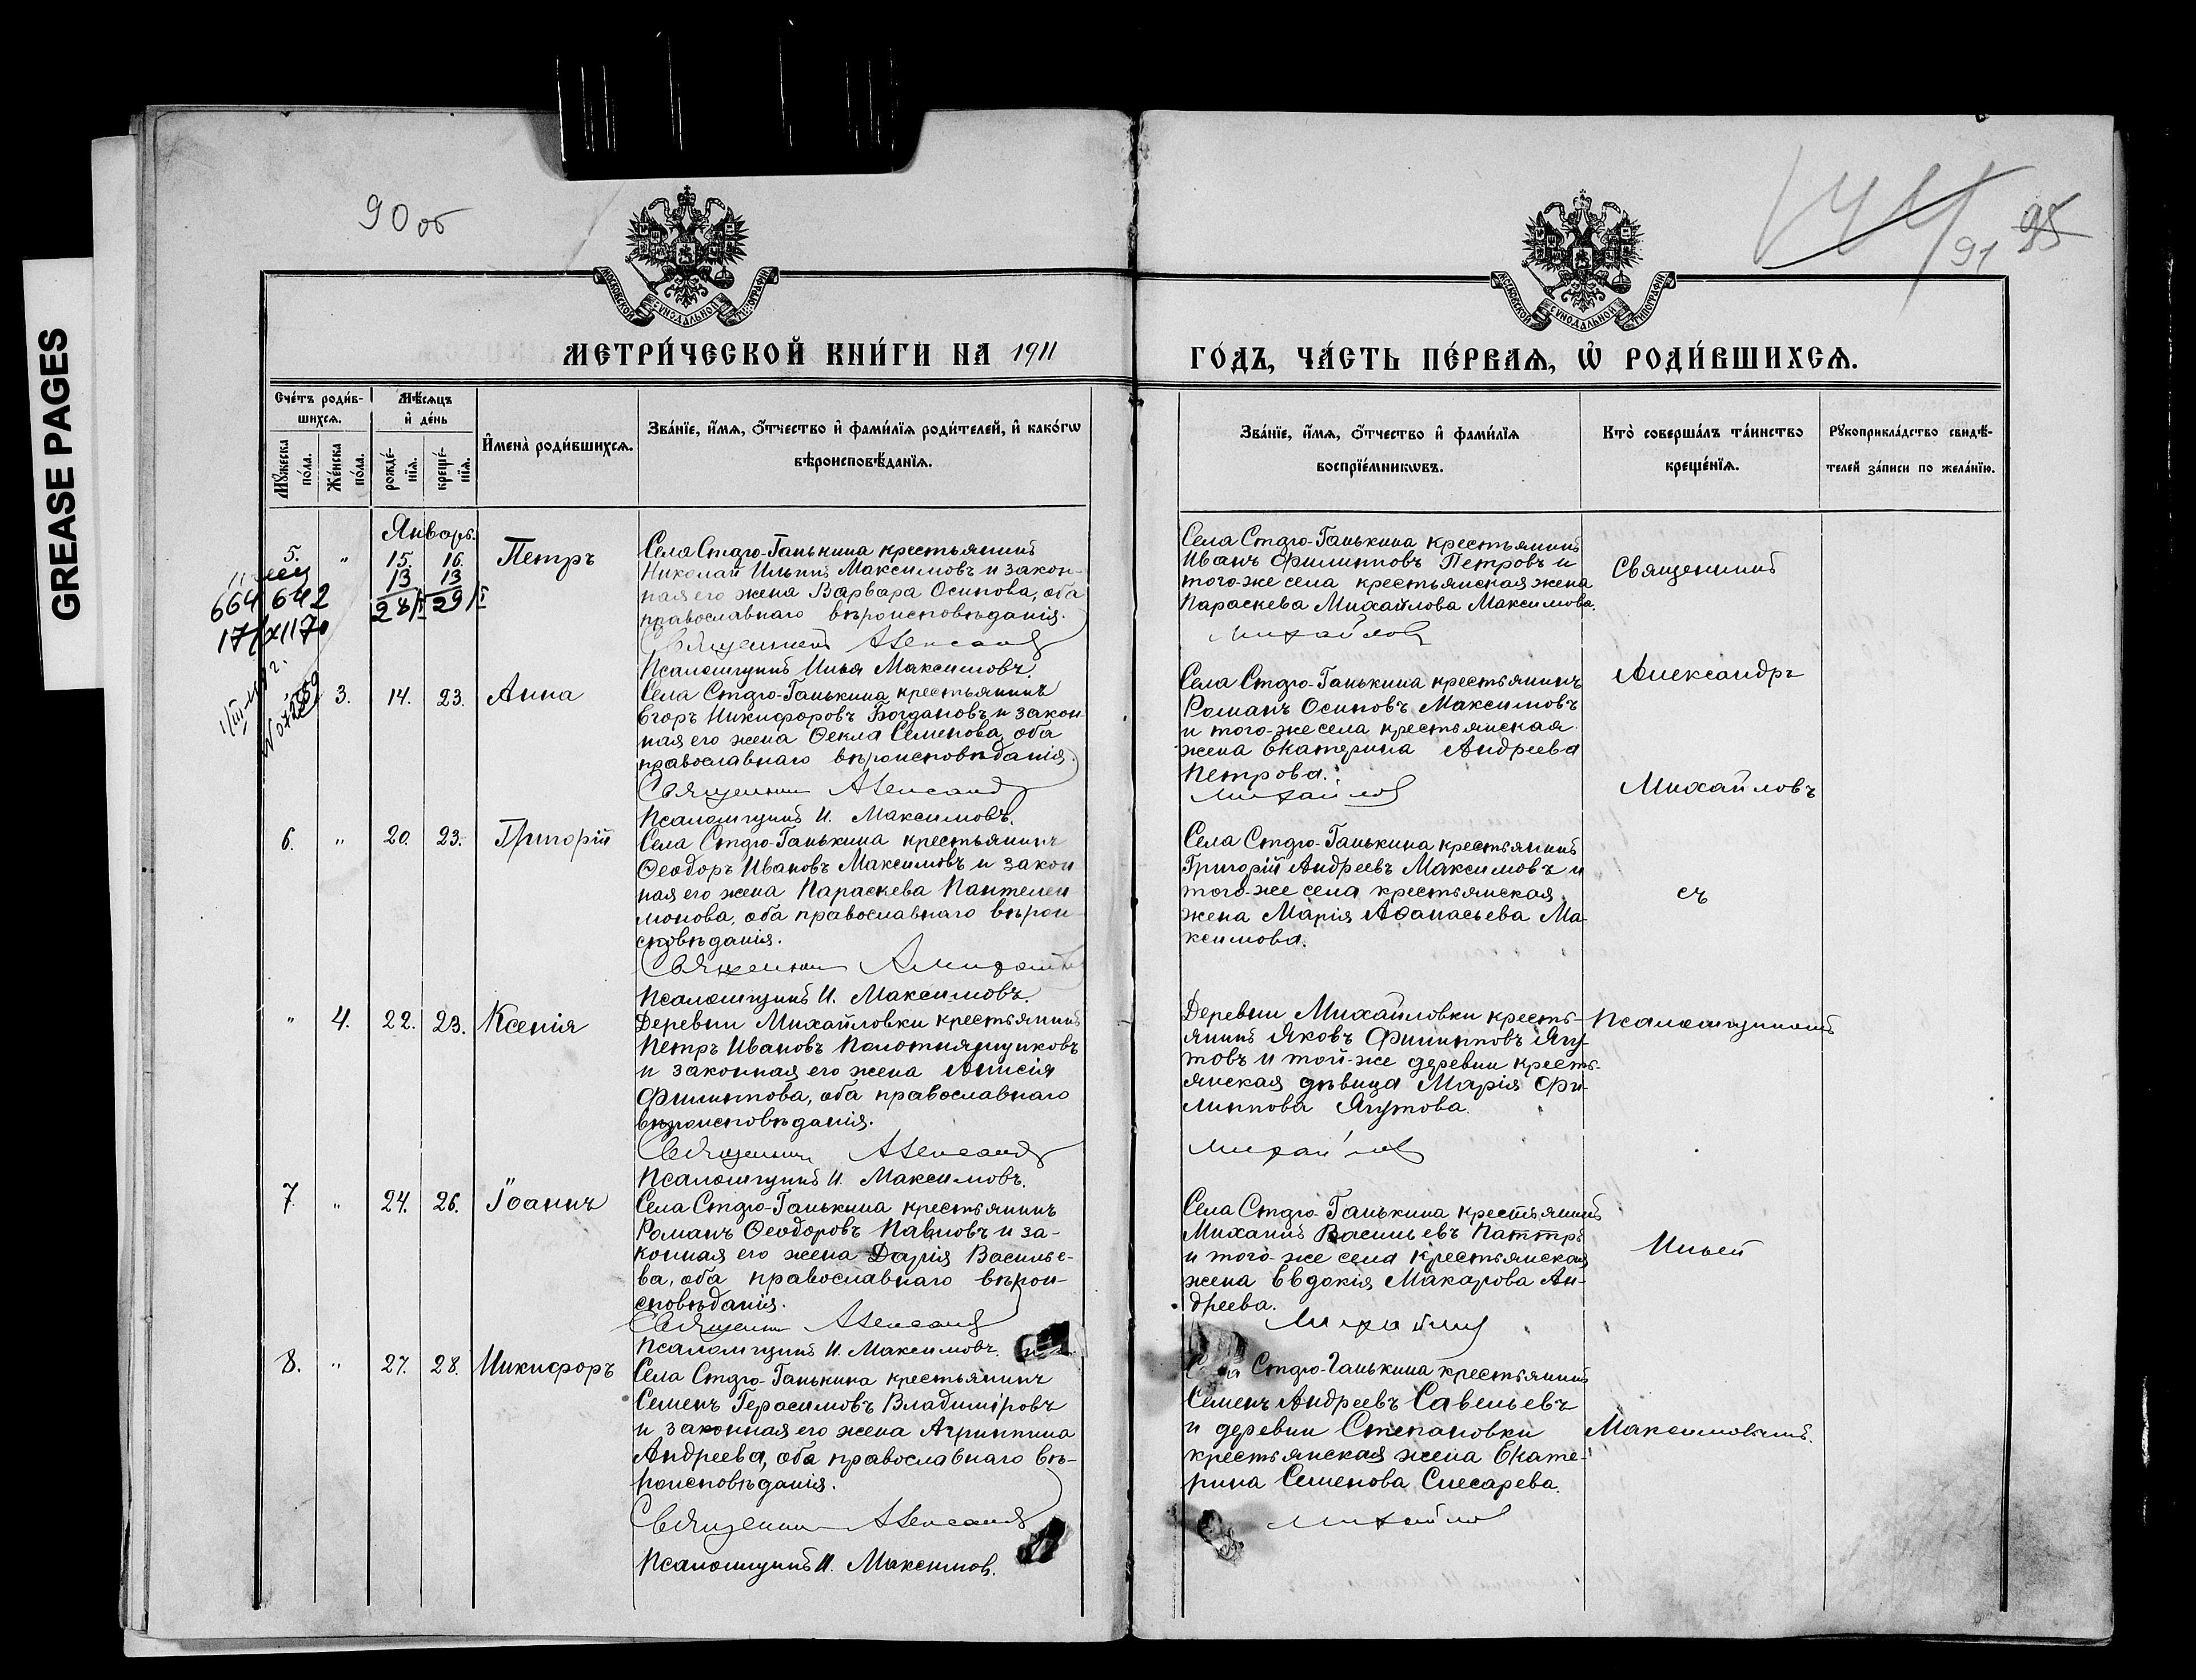 GREASE PAGES
90 об
91
95
МОСКОВСКОЙ СУНОДАЛЬНОЙ ТИПОГРАФІИ
МОСКОВСКОЙ СУНОДАЛЬНОЙ ТИПОГРАФІИ
МЕТРИ́ЧЕСКОЙ КНИ́ГИ НА 1911
ГО́ДЪ, ЧА́СТЬ ПЕ́РВАЯ, Ѡ҆ РОДИ́ВШИХСЯ.
Сче́тъ роди́в-
шихся.
Мѣ́сяцъ
и҆ де́нь
Мꙋ́жеска по́ла.
Же́нска по́ла.
рожде́-
нїя.
креще́-
нїя.
И҆мена̀ роди́вшихся.
Зва́нїе, и҆́мя, ѻ҆́тчество и҆ фами́лїя роди́телей, и҆ како́гѡ
вѣроисповѣ́данїя.
Зва́нїе, и҆́мя, ѻ҆́тчество и҆ фами́лїя
воспрїе́мникѡвъ.
Кто̀ соверша́лъ та́инство
креще́нїя.
Рꙋкоприкла́дство свидѣ́-
телей за́писи по жела́нїю.
Январь.
5. " 15. 16. Петръ
13 13
28/I 29/I
664 642
Села Старо-Ганькина крестьянинъ
Николай Ильинъ Максимовъ и закон-
ная его жена Варвара Осипова, оба
православнаго вѣроисповѣданія.
Священникъ Александр
Псаломщикъ Илья Максимовъ.
Села Старо-Ганькина крестьянинъ
Иванъ Филипповъ Петровъ и
того-же села крестьянская жена
Параскева Михайлова Максимова.
Михайлов
Священникъ
Александръ
Михайловъ
съ
Псаломщикомъ
Ильей
Максимовымъ.
3. 14. 23. Анна
Села Старо-Ганькина крестьянинъ
Егоръ Никифоровъ Богдановъ и закон-
ная его жена Ѳекла Семенова, оба
православнаго вѣроисповѣданія.
Священник Александр
Псаломщикъ И. Максимовъ.
Села Старо-Ганькина крестьянинъ
Романъ Осиповъ Максимовъ
и того-же села крестьянская
жена Екатерина Андреева
Петрова.
Михайлов
6. " 20. 23. Григорій
Села Старо-Ганькина крестьянинъ
Ѳеодоръ Ивановъ Максимовъ и закон
ная его жена Параскева Пантелей
монова, оба православнаго вѣрои-
сповѣданія.
Священник А Михайлов
Псаломщикъ И. Максимовъ.
Села Старо-Ганькина крестьянинъ
Григорій Андреевъ Максимовъ и
того-же села крестьянская
жена Марія Аѳанасьева Ма-
ксимова.
" 4. 22. 23. Ксенія
Деревни Михайловки крестьянинъ
Петръ Ивановъ Полотнянщиковъ
и законная его жена Анисія
Филиппова, оба православнаго
вѣроисповѣданія.
Священник Александр
Псаломщикъ И. Максимовъ.
Деревни Михайловки кресть-
янинъ Яковъ Филипповъ Ягу-
товъ и той-же деревни кресть-
янская дѣвица Марія Фи-
липпова Ягутова.
Михайлов
7. " 24. 26. Іоаннъ
Села Старо-Ганькина крестьянинъ
Романъ Ѳеодоровъ Павловъ и за-
конная его жена Дарія Василье-
ва, оба православнаго вѣрои-
сповѣданія.
Священник Александр
Псаломщикъ И. Максимовъ.
Села Старо-Ганькина крестьянинъ
Михаилъ Васильевъ
и того-же села крестьянская
жена Евдокія Макарова Ан-
дреева.
Михайлов
8. " 27. 28. Никифоръ
Села Старо-Ганькина крестьянинъ
Семенъ Герасимовъ Владиміровъ
и законная его жена Агриппина
Андреева, оба православнаго вѣ-
роисповѣданія.
Священник Александр
Псаломщикъ И. Максимов.
Села Старо-Ганькина крестьянинъ
Семенъ Андреевъ Савельевъ
и деревни Степановки
крестьянская жена Екате-
рина Семенова Слесарева.
Михайлов